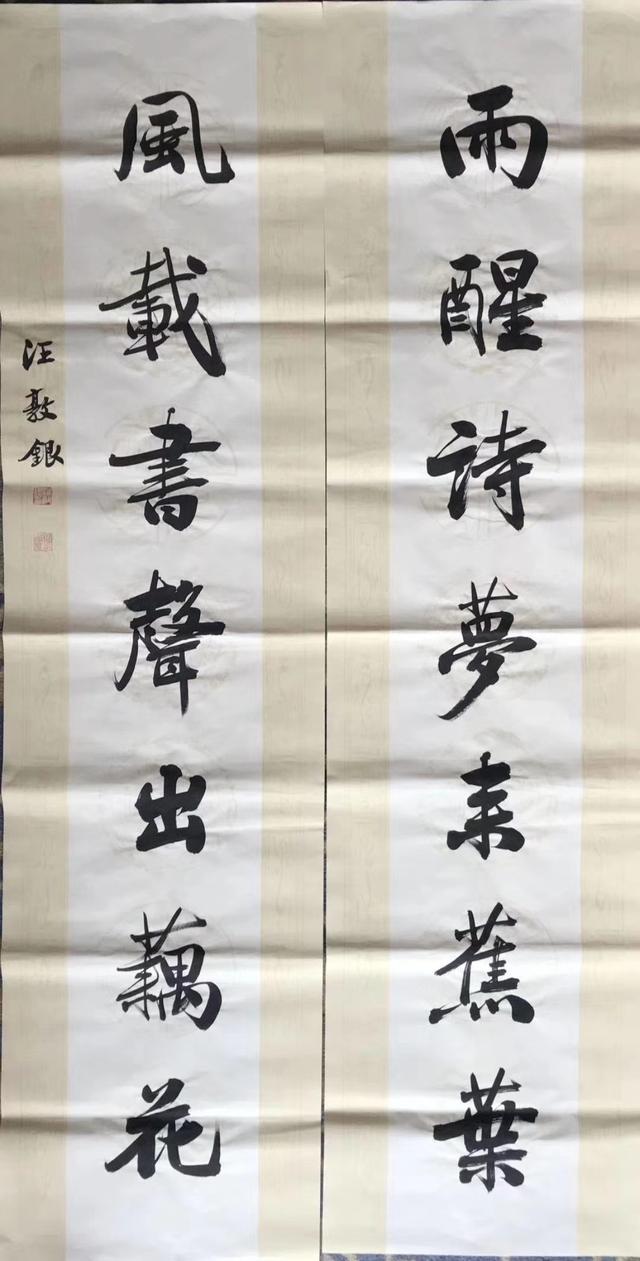 雨醒詩夢来蕉葉
風載書聲出藕花
汪敦銀